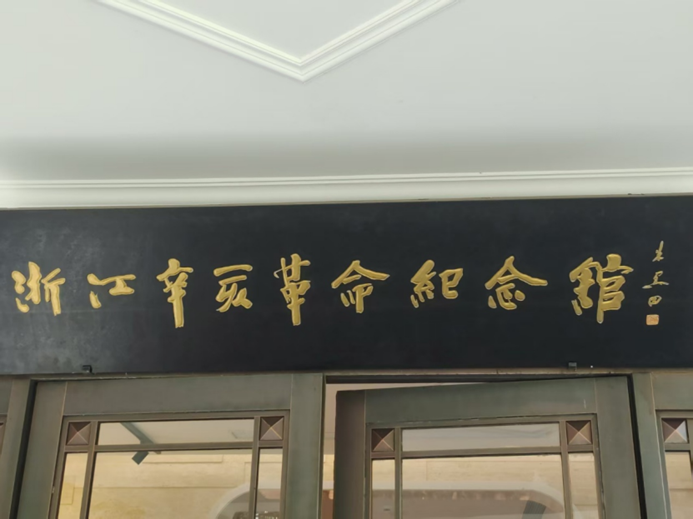 浙江辛亥革命紀念館